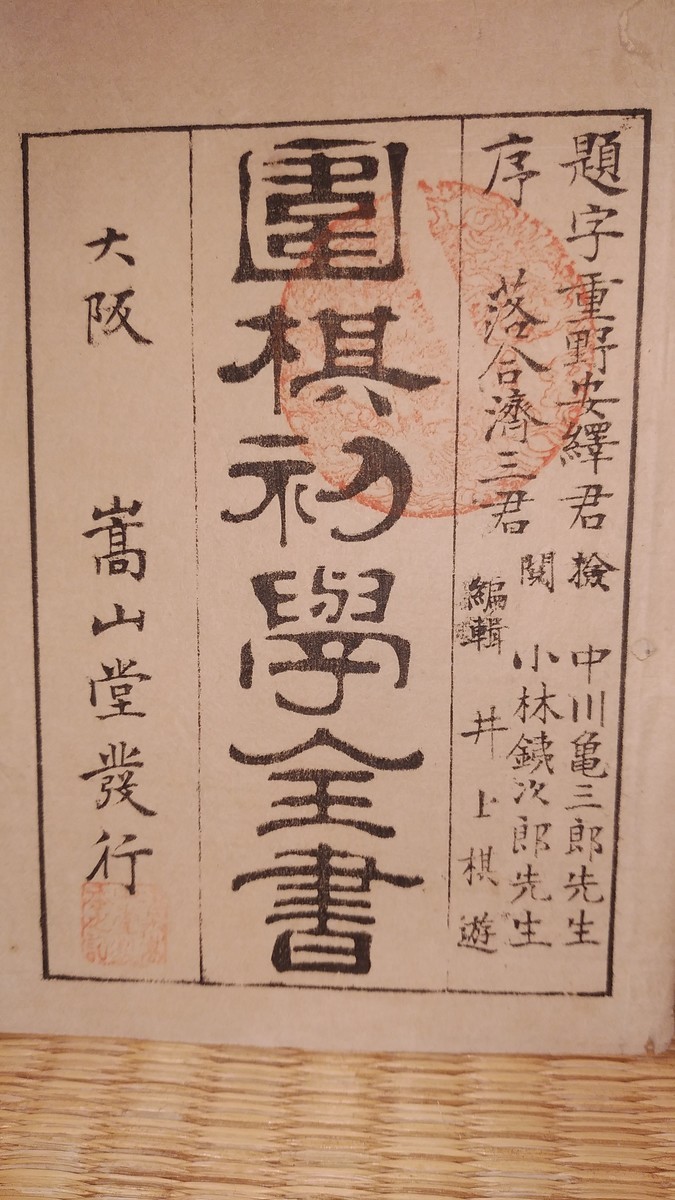 題字重野安繹君
序 落合濟三君
檢閱 中川亀三郎先生
小林銕次郎先生
編輯 井上棋遊
圍棋初學全書
大阪 嵩山堂發行